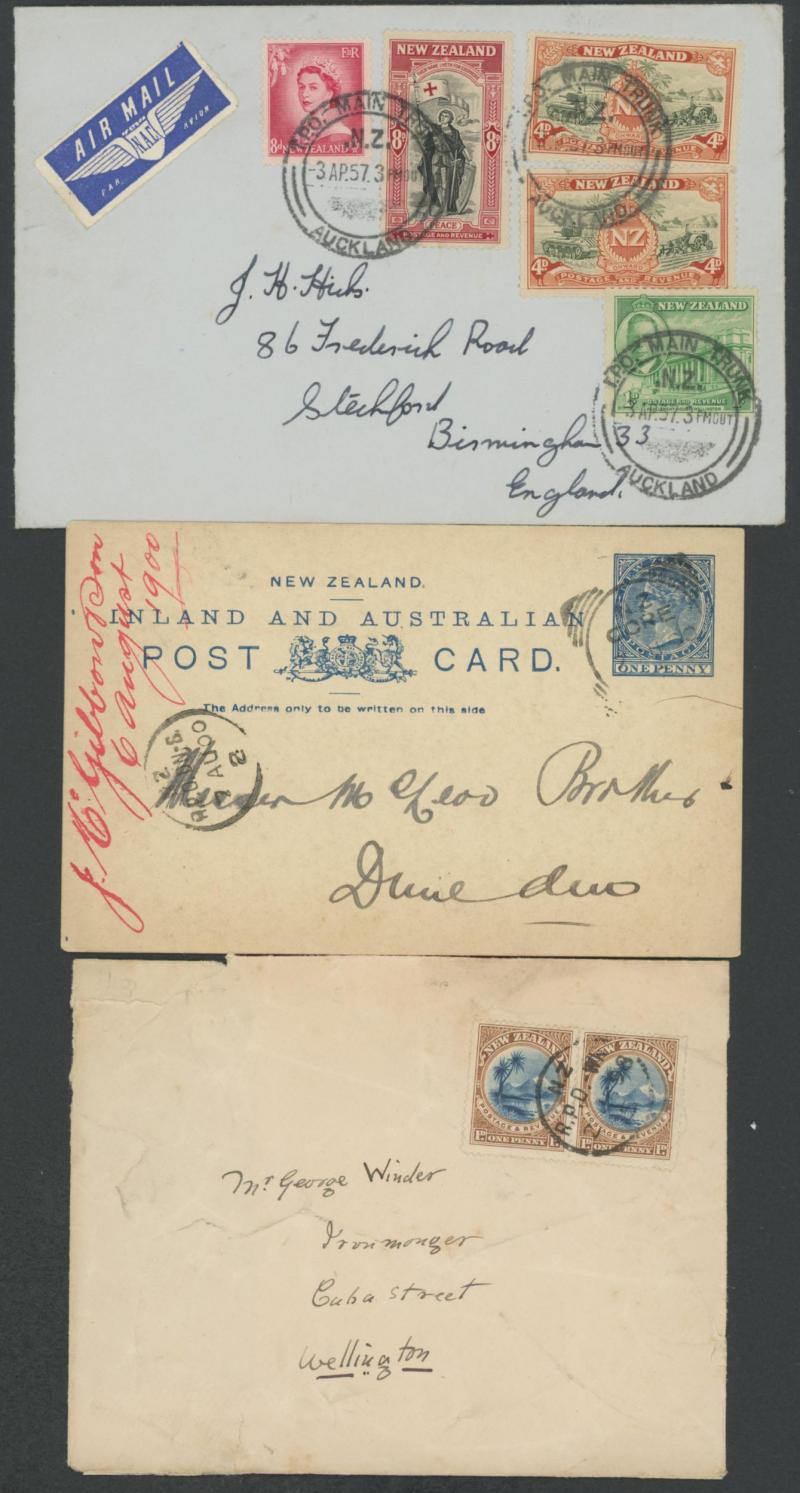 AIR MAIL
PAR AVION
E R
8d NEW ZEALAND
NEW ZEALAND
8D 8D
PEACE
POSTAGE AND REVENUE
NEW ZEALAND
NZ
4D 4D
POSTAGE AND REVENUE
NEW ZEALAND
NZ
4D 4D
ONWARD
POSTAGE AND REVENUE
NEW ZEALAND
POSTAGE AND REVENUE
MAIN TRUNK
N.Z.
-3 AP.57.3 PMOUT
AUCKLAND
MAIN TRUNK
N.Z.
AUCKLAND
T.P.O. MAIN TRUNK
.N.Z.
3 AP.57.3 PMOUT
AUCKLAND
J. H. Hicks.
86 Frederick Road
Stechford
Birmingham 33
England.
NEW ZEALAND.
INLAND AND AUSTRALIAN
POST CARD.
The Address only to be written on this side
POSTAGE
ONE PENNY
GORE
J. McGibbon & Son
6 August 1900
AU 00
2
McLeod Brothers
Dunedin
NEW ZEALAND
POSTAGE & REVENUE
1D ONE PENNY
NEW ZEALAND
POSTAGE & REVENUE
ONE PENNY 1D
N.Z
R.P.O.
Mr George Winder
Ironmonger
Cuba Street
Wellington